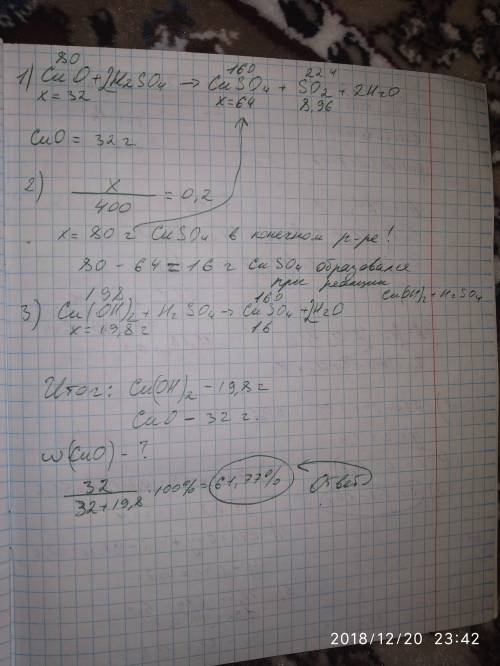 80 160 22.4
1) CuO + 2H2SO4 → CuSO4 + SO2 + 2H2O
x = 32 x = 64 8,96
CuO = 32 г
2) x/400 = 0,2
x = 80 г CuSO4 в конечном р-ре!
80 - 64 = 16 г CuSO4 образовался
при реакции Cu(OH)2 + H2SO4
198 160
3) Cu(OH)2 + H2SO4 → CuSO4 + 2H2O
x = 19,8 г 16
Итог: Cu(OH)2 - 19,8 г
CuO - 32 г.
w(CuO) - ?
32/(32+19,8) · 100% = 61,77% Ответ
2018/12/20 23:42